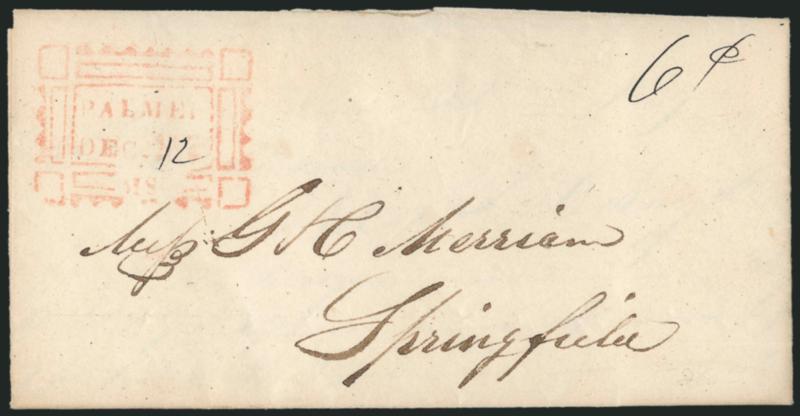 6¢
PALMER
DEC. 12
MS
Mess G & C Merriam
Springfield